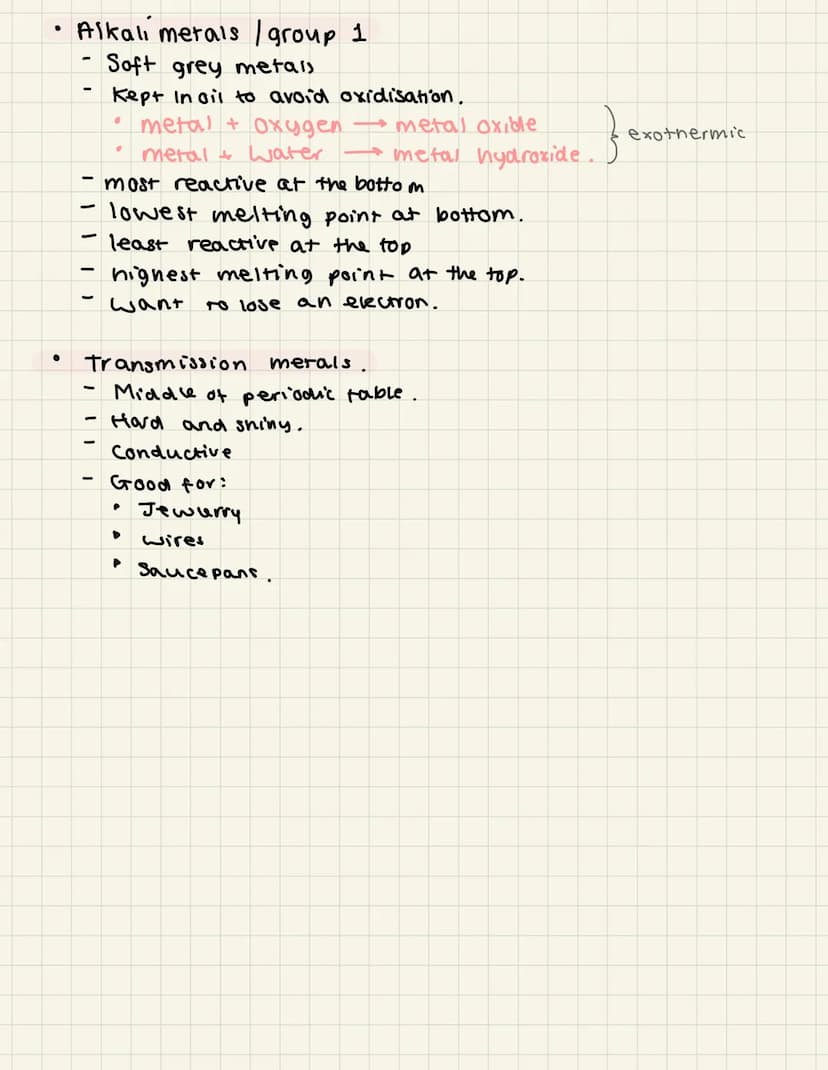 • Alkali metals / group 1
- Soft grey metals
- Kept in oil to avoid oxidisation.
• metal + oxygen → metal oxide
• metal + water → metal hydroxide. } exothermic
- most reactive at the bottom
- lowest melting point at bottom.
- least reactive at the top
- highest melting point at the top.
- want to lose an electron.
• Transmission metals.
- Middle of periodic table.
- Hard and shiny.
- Conductive
- Good for:
• Jewurry
• wires
• Saucepans.